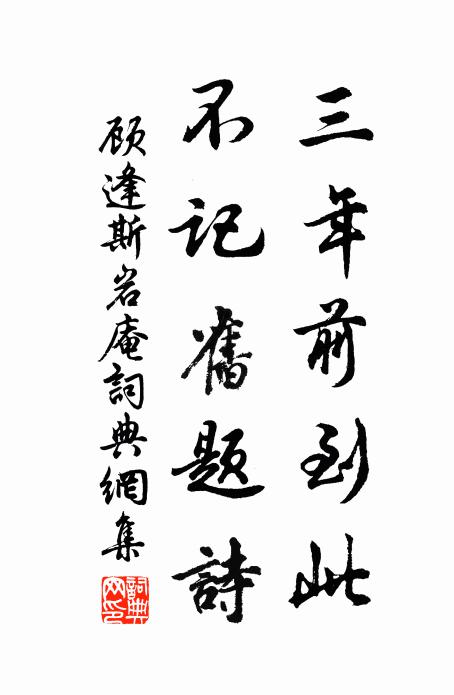 三年前到此
不记舊题詩
顾逢斯岩庵詞典網集
詞典網印